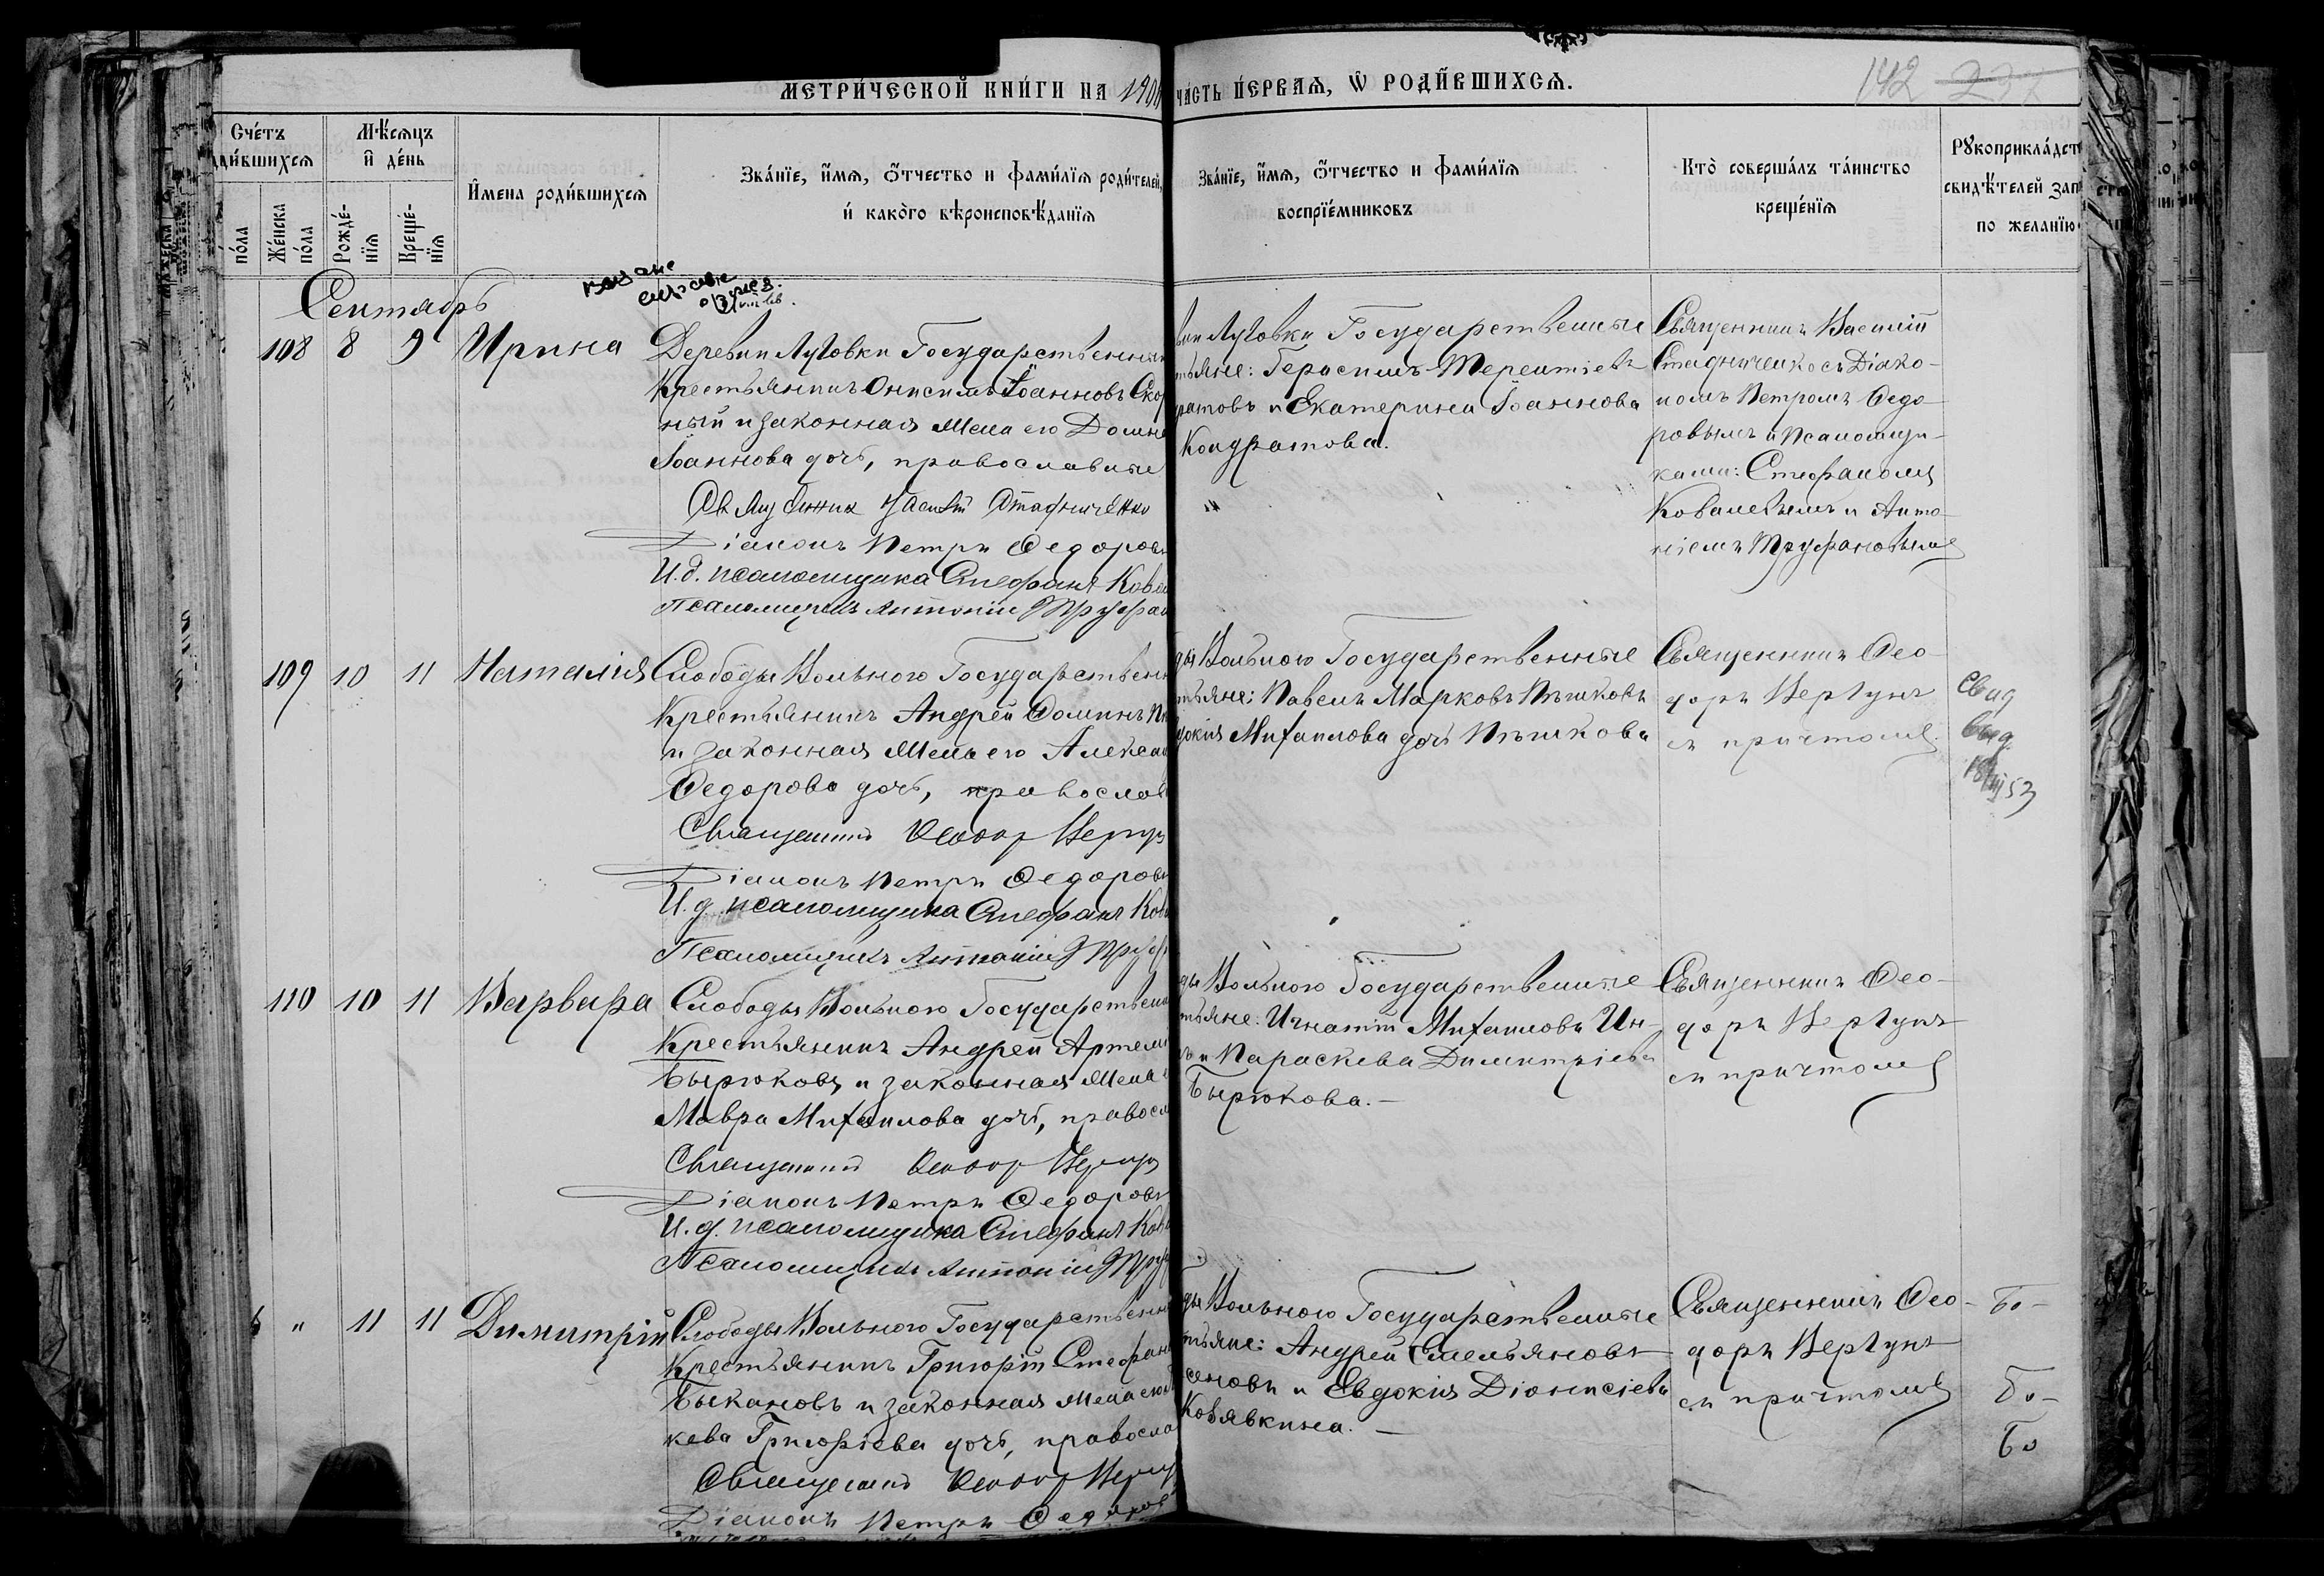 МЕТРИ́ЧЕСКОЙ КНИ́ГИ НА 190
ЧА́СТЬ ПЕ́РВАЯ, Ѿ РОДИ́ВШИХСЯ.
142 237
Сче́тъ
ди́вшихся
по́ла
Же́нска по́ла
Мѣ́сяцъ и де́нь
Рожде́-нїя
Креще́-нїя
Имена роди́вшихся
Зва́нїе, и́мя, о́тчество и фами́лїя роди́телей,
и како́го вѣроисповѣ́данїя
Зва́нїе, и́мя, о́тчество и фами́лїя
воспрїе́мниковъ
Кто̀ соверша́лъ та́инство
креще́нїя
Рꙋкоприкла́дст
свидѣ́телей зап
по жела́нїю
Сентябрь
108 8 9 Ирина
Деревни Луговки Государственны
Крестьянинъ Онисимъ Іоанновъ Ско
ный и законная жена его Домн
Іоаннова дочь, православные
Священник Василій Стадниченко
Діаконъ Петръ Федоровъ
И.д. псаломщика Стефанъ Кова
Псаломщикъ Антоній Труфан
вни Луговки Государственные
тьяне: Герасимъ Терентіевъ
ратовъ и Екатерина Іоаннова
Кондратова.
Священникъ Василій
Стадниченко съ Діако-
номъ Петромъ Федо
ровымъ и Псаломщи-
ками: Стефаномъ
Ковалевымъ и Анто
ніемъ Труфановымъ
109 10 11 Наталія
Слободы Вольного Государственн
Крестьянинъ Андрей Фоминъ
и законная жена его Алекса
Федорова дочь, православ
Священникъ Феодор Вергун
Діаконъ Петръ Федоровъ
И.д. псаломщика Стефанъ Кова
Псаломщикъ Антоній Труф
ды Вольного Государственные
тьяне: Павелъ Марковъ Пѣшковъ
докія Михаилова дочь Пѣшкова
Священникъ Фео-
доръ Вергунъ
съ причтомъ.
Свид
выд.
53
110 10 11 Варвара
Слободы Вольного Государствен
Крестьянинъ Андрей Артем
Бырюковъ и законная жена
Мавра Михаилова дочь, правосл
Священникъ Феодор Вергун
Діаконъ Петръ Федоровъ
И.д. псаломщика Стефанъ Кова
Псаломщикъ Антоній Труф
ды Вольного Государственные
тьяне: Игнатій Михаиловъ Ин-
и Параскева Димитріева
Бырюкова.-
Священникъ Фео-
доръ Вергунъ
съ причтомъ
" 11 11 Димитрій
Слободы Вольного Государственн
Крестьянинъ Григорій Стефан
Быкановъ и законная жена его
кева Григоріева дочь, правосла
Священникъ Феодор Вергун
Діаконъ Петръ Федоровъ
ды Вольного Государственные
тьяне: Андрей Емельяновъ
сеновъ и Евдокія Діонисіева
Ковявкина. -
Священникъ Фео-
доръ Вергунъ
съ причтомъ